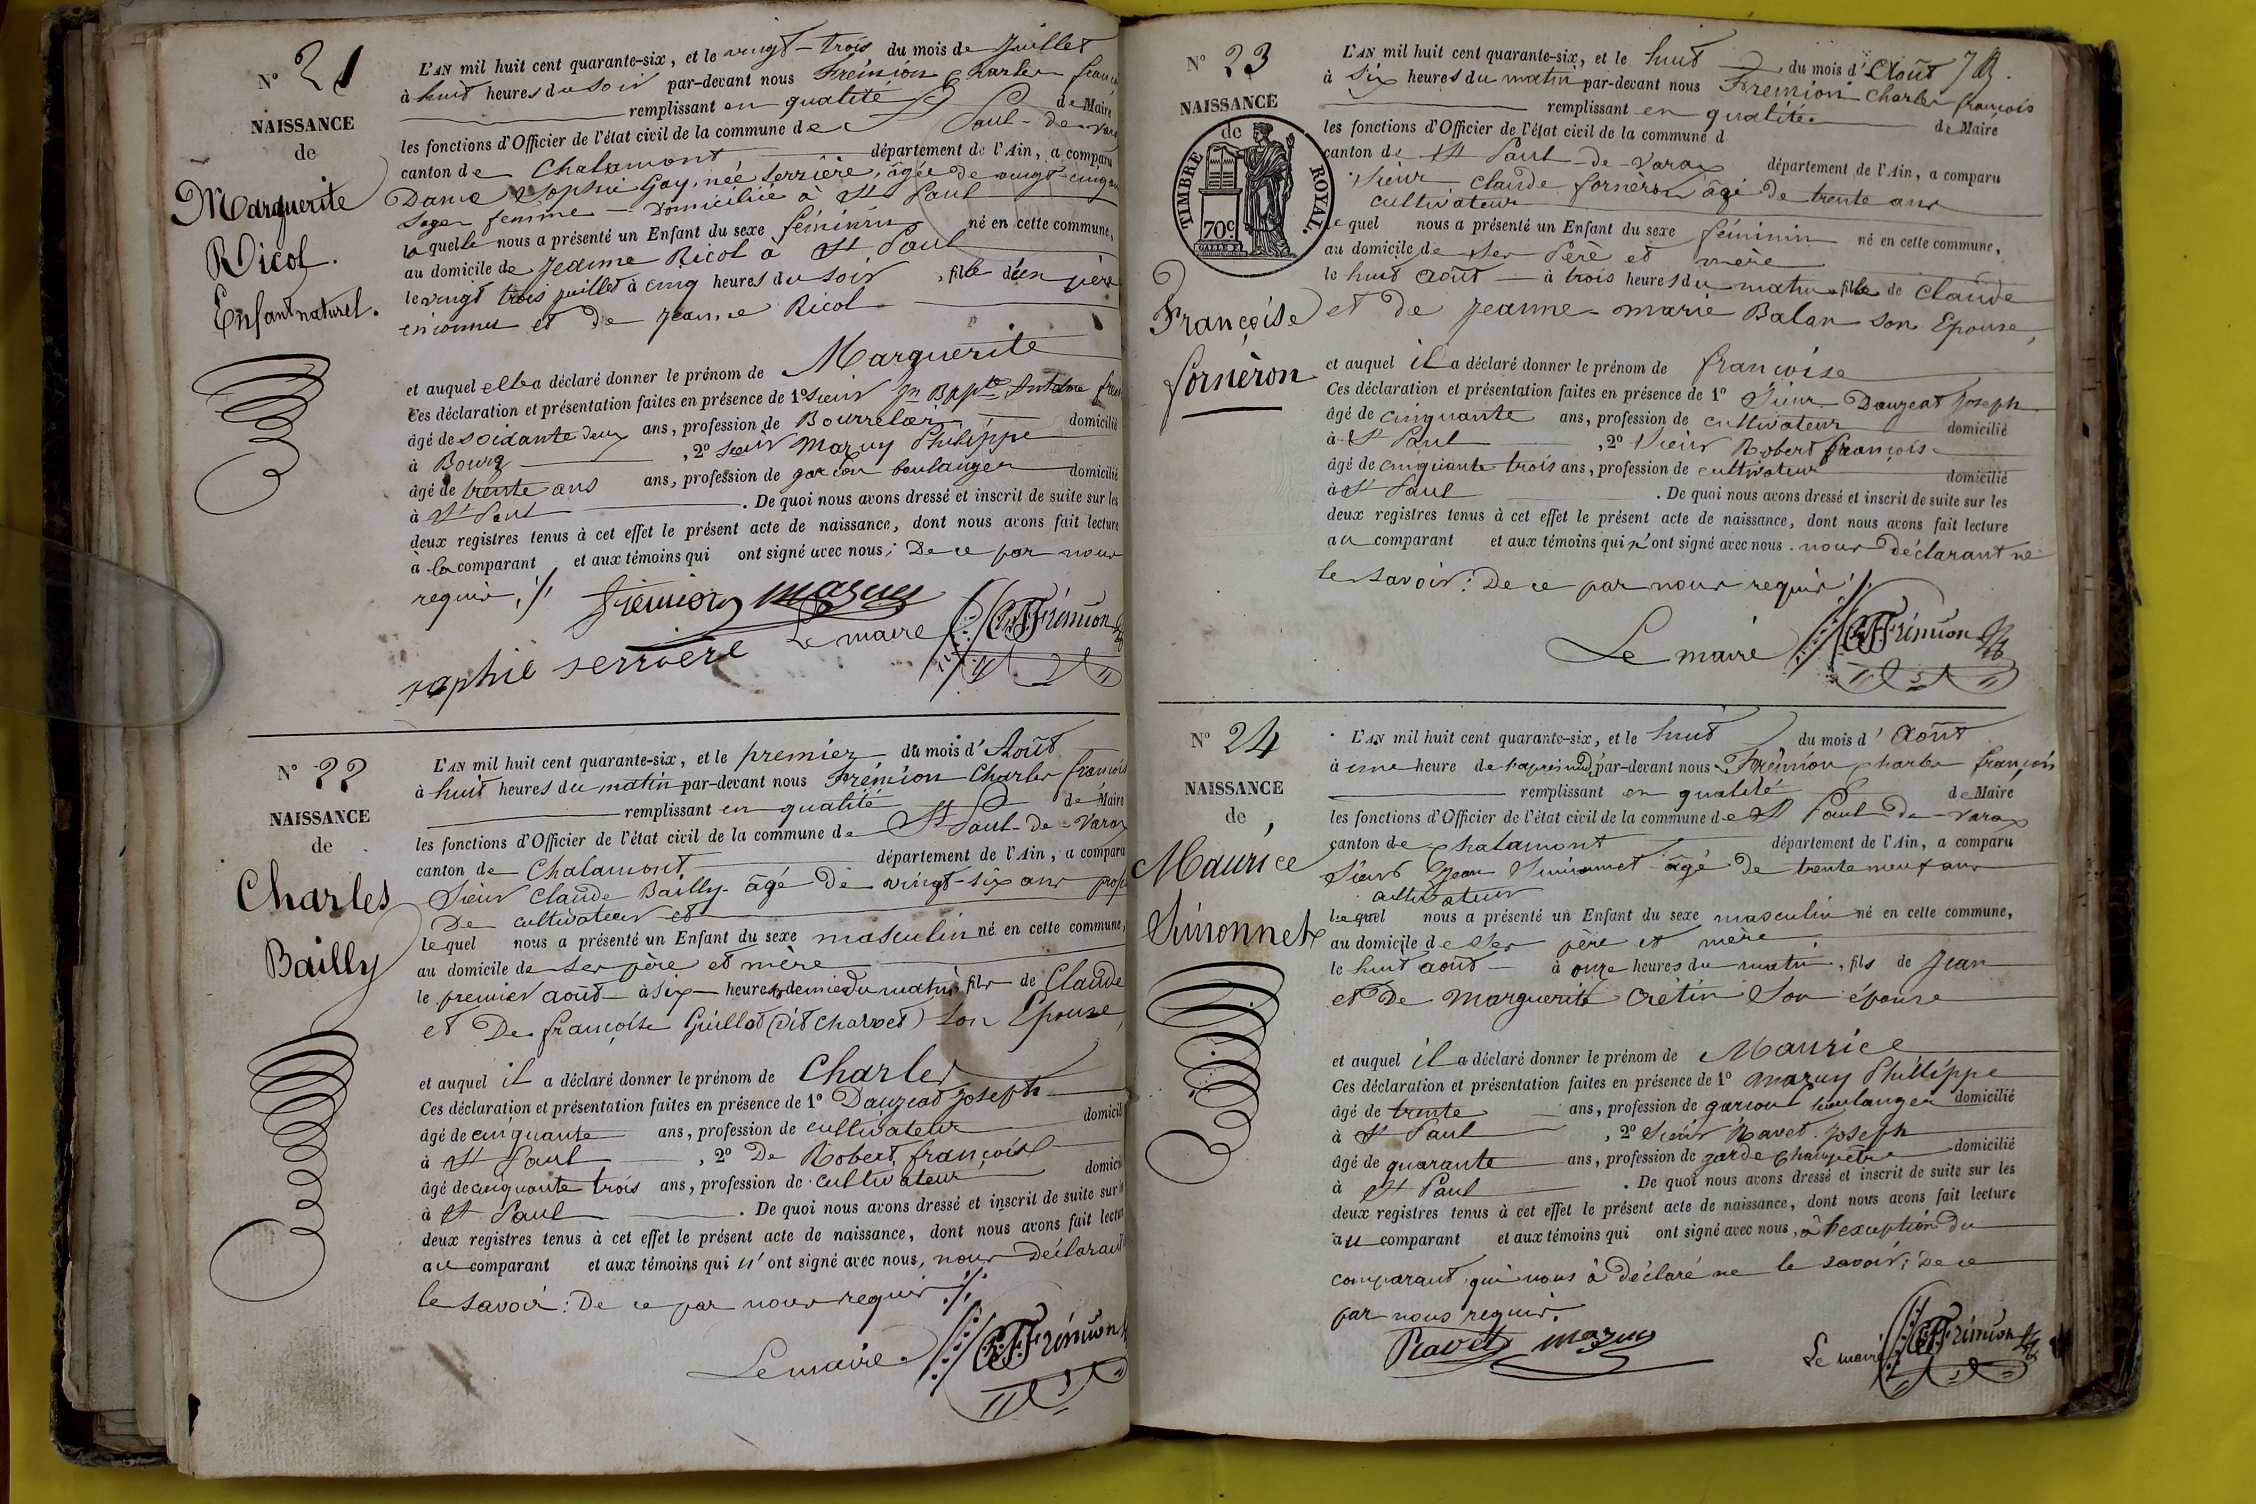 N° 21
NAISSANCE
de
Marguerite
Ricol.
Enfant naturel.
L'AN mil huit cent quarante-six, et le vingt-trois du mois de Juillet
à huit heures du soir par-devant nous Frémion Charles
remplissant en qualité de Maire
les fonctions d'Officier de l'état civil de la commune de St Paul-de-Varax
canton de Chalamont département de l'Ain, a comparu
Dame Sophie Gay, née Serrière, âgée de vingt-cinq ans
Sage femme domiciliée à St Paul
laquelle nous a présenté un Enfant du sexe féminin né en cette commune,
au domicile de Jeanne Ricol à St Paul
le vingt trois juillet à cinq heures du soir, fille d'un père
inconnu et de Jeanne Ricol
et auquel elle a déclaré donner le prénom de Marguerite
Ces déclaration et présentation faites en présence de 1° Sieur Jn Bapte
âgé de soixante deux ans, profession de Bourrelier domicilié
à Bourg, 2° Sieur Mazuy Philippe
âgé de trente ans ans, profession de garçon boulanger domicilié
à St Paul. De quoi nous avons dressé et inscrit de suite sur les
deux registres tenus à cet effet le présent acte de naissance, dont nous avons fait lecture
à la comparant et aux témoins qui ont signé avec nous; De ce par nous
requis ./.
mazuy
Le maire CF Frémion
sophie serriere
N° 22
NAISSANCE
de
Charles
Bailly
L'AN mil huit cent quarante-six, et le premier du mois d'Août
à huit heures du matin par-devant nous Frémion Charles françois
remplissant en qualité de Maire
les fonctions d'Officier de l'état civil de la commune de St Paul-de-Varax
canton de Chalamont département de l'Ain, a comparu
Sieur Claude Bailly âgé de vingt-six ans prof
De cultivateur et
lequel nous a présenté un Enfant du sexe masculin né en cette commune,
au domicile de ses père et mère
le premier août à six heures & demie du matin fils de Claude
et De françoise Guillot (dit Charvet) son Epouse,
et auquel il a déclaré donner le prénom de Charles
Ces déclaration et présentation faites en présence de 1° Dauzeat Joseph
âgé de cinquante ans, profession de cultivateur domicil
à St Paul, 2° De Robert françois
âgé de cinquante trois ans, profession de cultivateur domici
à St Paul. De quoi nous avons dressé et inscrit de suite sur
deux registres tenus à cet effet le présent acte de naissance, dont nous avons fait lectur
au comparant et aux témoins qui n'ont signé avec nous, nous déclarant
le savoir: De ce par nous requis ./.
Le maire CF Frémion
N° 23
NAISSANCE
de
TIMBRE ROYAL.
70c
Françoise
fornèron
L'AN mil huit cent quarante-six, et le huit du mois d'Août
à six heures du matin par-devant nous Frémion Charles françois
remplissant en qualité de Maire
les fonctions d'Officier de l'état civil de la commune d
canton de St Paul-de-Varax département de l'Ain, a comparu
Sieur Claude fornèron âgé de trente ans
cultivateur
lequel nous a présenté un Enfant du sexe féminin né en cette commune,
au domicile de ses Père et mère
le huit août à trois heures du matin fille de Claude
et de Jeanne-marie Balan son Epouse,
et auquel il a déclaré donner le prénom de françoise
Ces déclaration et présentation faites en présence de 1° Sieur Dauzeat Joseph
âgé de cinquante ans, profession de cultivateur domicilié
à St Paul, 2° Sieur Robert françois
âgé de cinquante trois ans, profession de cultivateur domicilié
à St Paul. De quoi nous avons dressé et inscrit de suite sur les
deux registres tenus à cet effet le présent acte de naissance, dont nous avons fait lecture
au comparant et aux témoins qui n'ont signé avec nous. nous déclarant ne
le savoir: De ce par nous requis ./.
Le maire CF Frémion
N° 24
NAISSANCE
de
Maurice
Simonnet
L'AN mil huit cent quarante-six, et le huit du mois d'Août
à une heure de l'après midi, par-devant nous Frémion Charles françois
remplissant en qualité de Maire
les fonctions d'Officier de l'état civil de la commune de St Paul De-Varax
canton de Chalamont département de l'Ain, a comparu
Sieur Jean Simonnet âgé de trente neuf ans
cultivateur
lequel nous a présenté un Enfant du sexe masculin né en cette commune,
au domicile de ses père et mère
le huit août à onze heures du matin, fils de Jean
et De Marguerite Crétin son épouse
et auquel il a déclaré donner le prénom de Maurice
Ces déclaration et présentation faites en présence de 1° Mazuy Philippe
âgé de trente ans, profession de garçon boulanger domicilié
à St Paul, 2° Sieur Ravet Joseph
âgé de quarante ans, profession de garde champêtre domicilié
à St Paul. De quoi nous avons dressé et inscrit de suite sur les
deux registres tenus à cet effet le présent acte de naissance, dont nous avons fait lecture
au comparant et aux témoins qui ont signé avec nous, à l'exception du
comparant qui nous à déclaré ne le savoir; De ce
par nous requis.
Ravet mazuy
Le maire CF Frémion